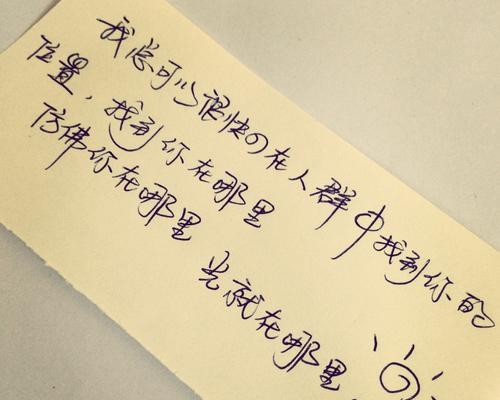 我总可以很快的在人群中找到你的
位置,找到你在哪里
仿佛你在哪里
光就在哪里